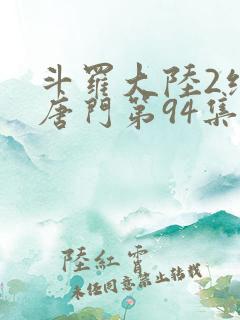 斗羅大陸2絕
唐門第94集
陸紅霄
未經同意禁止轉載